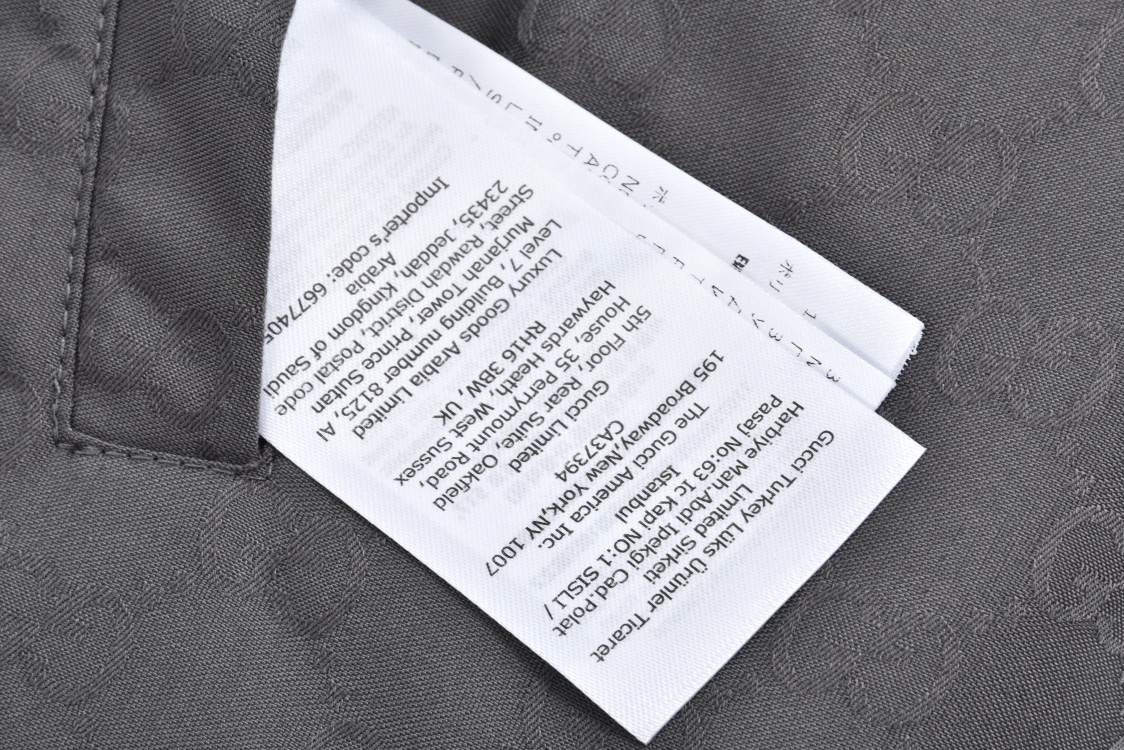 Gucci Turkey Lüks Ürünler Ticaret
Limited Sirketi
Harbiye Mah.Abdi Ipekgi Cad.Polat
Pasaj No:63 Ic Kapi NO:1 SISLI /
Istanbul
The Gucci America Inc.
195 Broadway,New York,NY 1007
CA37394
Gucci Limited
5th Floor, Rear Suite, Oakfield
House, 35 Perrymount Road,
Haywards Heath, West Sussex
RH16 3BW , UK
Luxury Goods Arabia Limited
Level 7, Building number 8125, Al
Murjanah Tower, Prince Sultan
Street, Rawdah District, Postal code
23435, Jeddah, Kingdom of Saudi
Arabia
Importer's code: